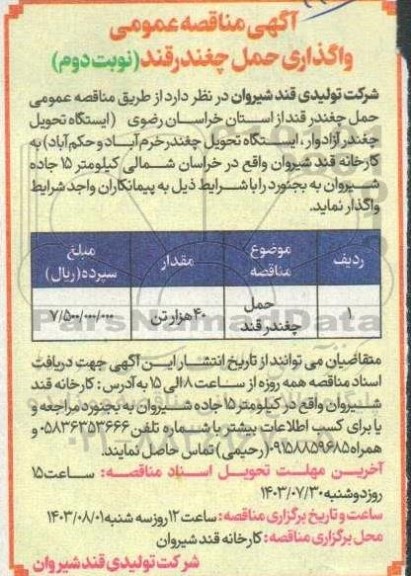 آگهی مناقصه عمومی
واگذاری حمل چغندرقند (نوبت دوم)
شرکت تولیدی قند شیروان در نظر دارد از طریق مناقصه عمومی
حمل چغندر قند از استان خراسان رضوی (ایستگاه تحویل
چغندر آزادوار ، ایستگاه تحویل چغندر خرم آباد و حکم آباد) به
کارخانه قند شیروان واقع در خراسان شمالی کیلومتر ۱۵ جاده
شیروان به بجنورد را با شرایط ذیل به پیمانکاران واجد شرایط
واگذار نماید.
ردیف موضوع مناقصه مقدار مبلغ سپرده (ریال)
۱ حمل چغندر قند ۴۰ هزار تن ۷/۵۰۰/۰۰۰/۰۰۰
متقاضیان می توانند از تاریخ انتشار این آگهی جهت دریافت
اسناد مناقصه همه روزه از ساعت ۸ الی ۱۵ به آدرس : کارخانه قند
شیروان واقع در کیلومتر ۱۵ جاده شیروان به بجنورد مراجعه و
یا برای کسب اطلاعات بیشتر با شماره تلفن ۰۵۸۳۶۳۵۳۶۶۶ و
همراه ۰۹۱۵۸۸۵۹۶۸۵ (رحیمی) تماس حاصل نمایند.
آخرین مهلت تحویل اسناد مناقصه: ساعت ۱۵
روز دوشنبه ۱۴۰۳/۰۷/۳۰
ساعت و تاریخ برگزاری مناقصه: ساعت ۱۲ روز سه شنبه ۱۴۰۳/۰۸/۰۱
محل برگزاری مناقصه: کارخانه قند شیروان
شرکت تولیدی قند شیروان
ParsNamadData